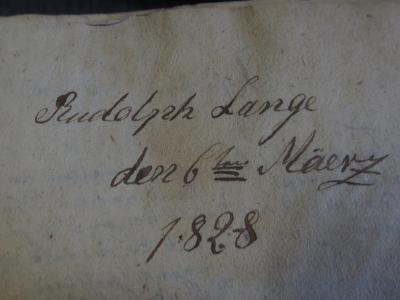 Rudolph Lange
den 6ten Maerz
1828